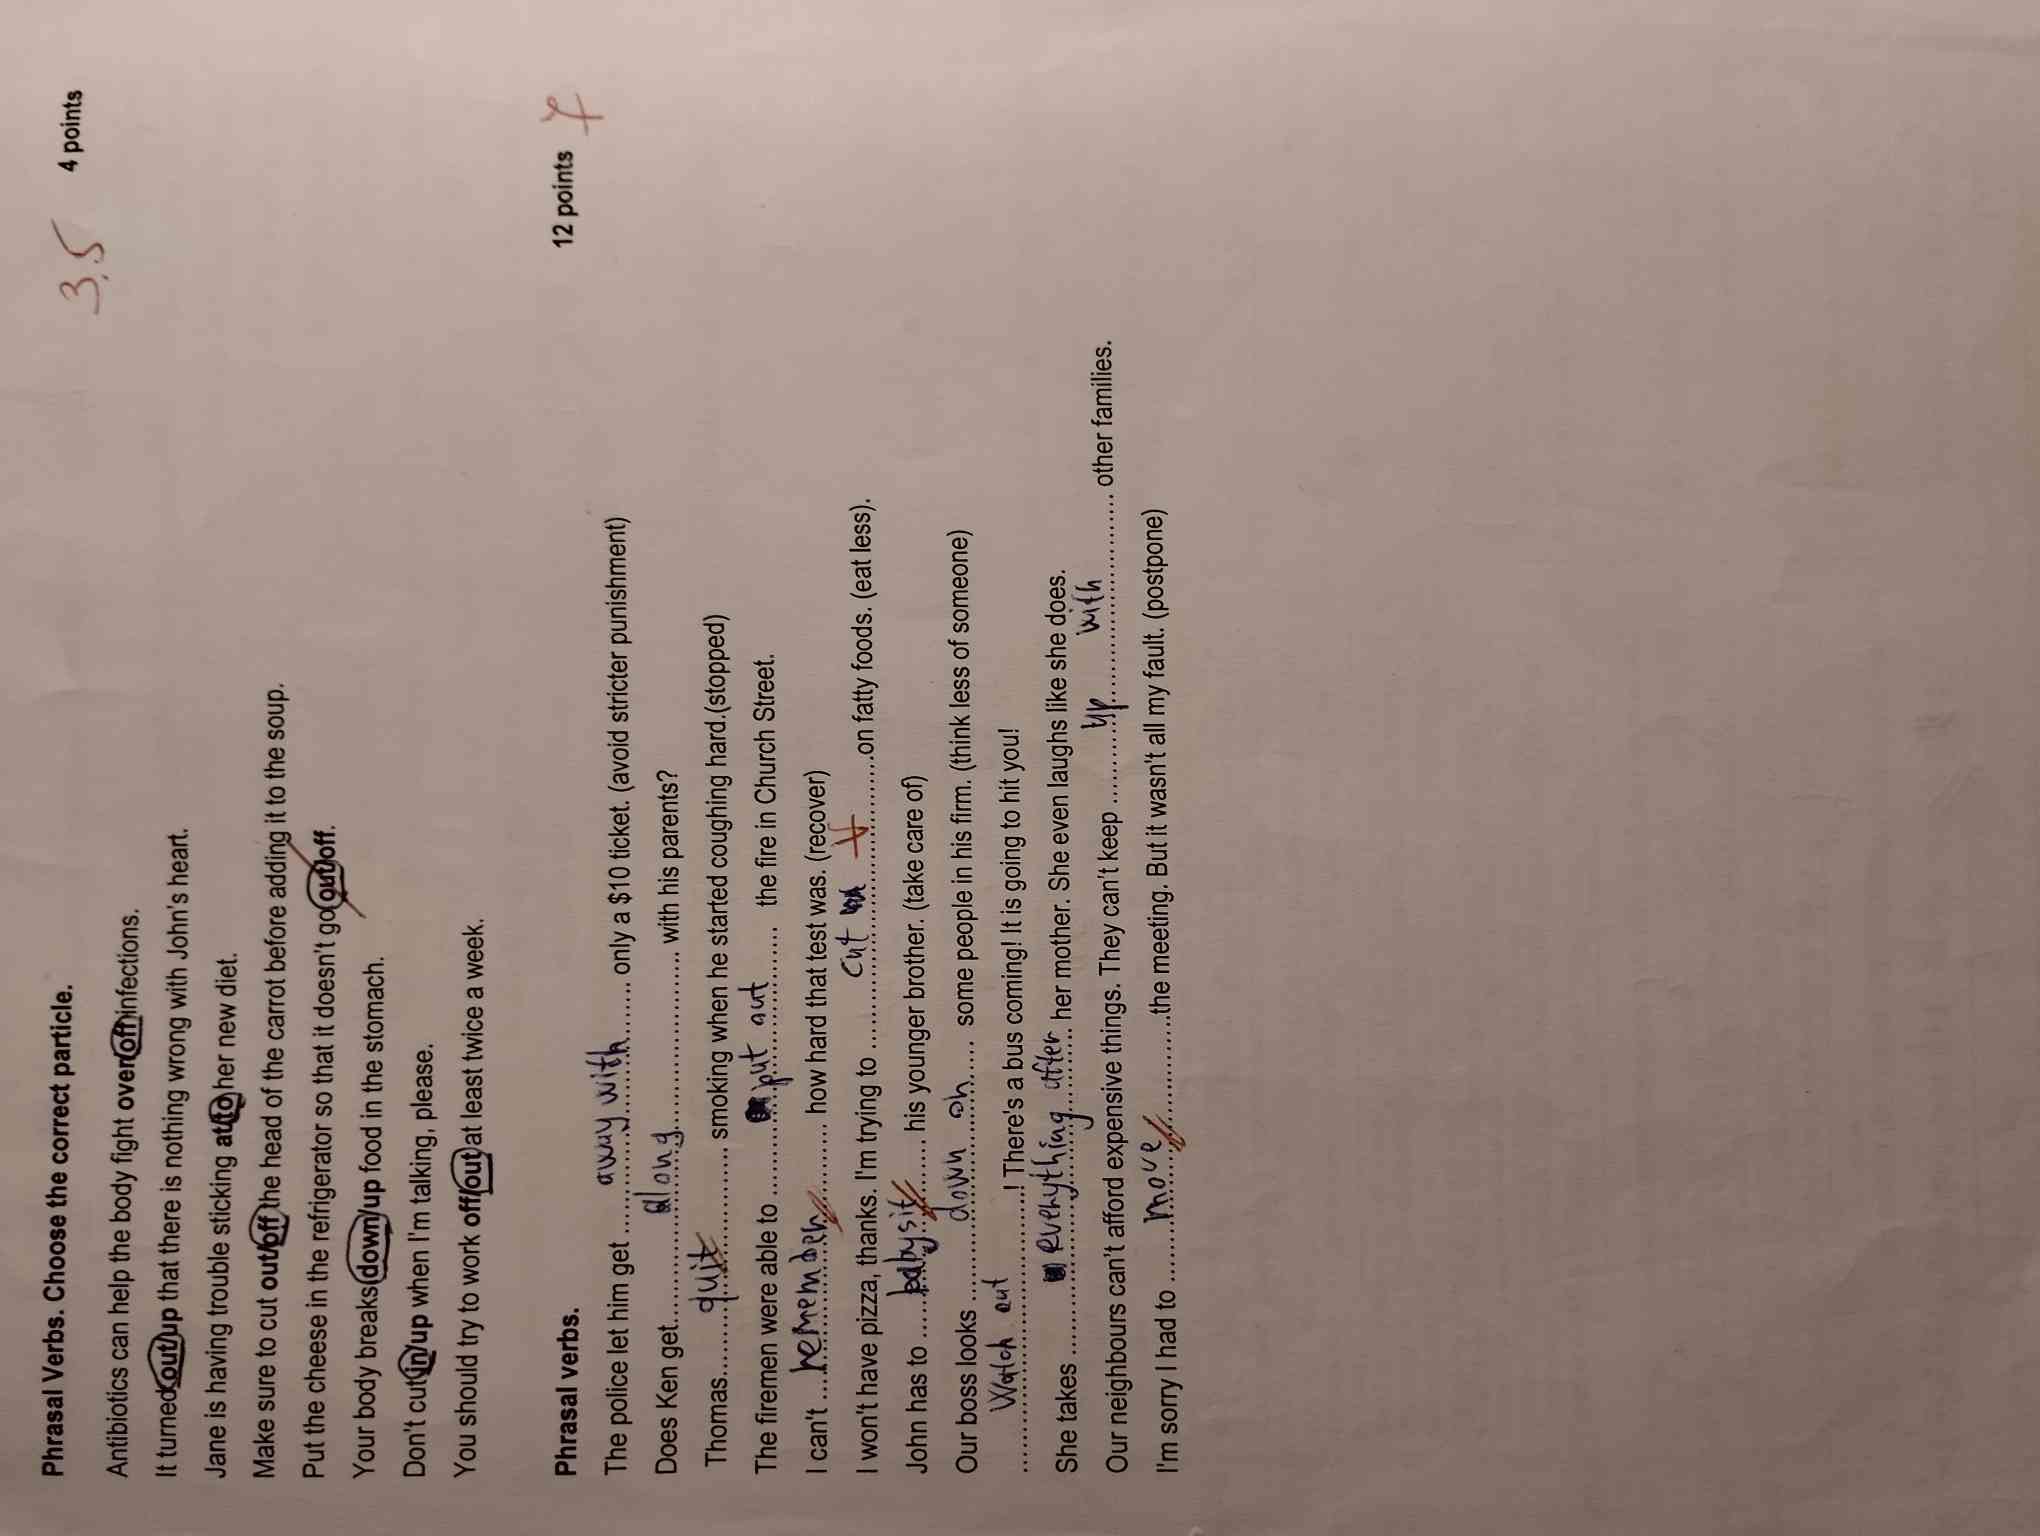 Phrasal Verbs. Choose the correct particle. 3,5 4 points
Antibiotics can help the body fight over/off infections.
It turned out/up that there is nothing wrong with John's heart.
Jane is having trouble sticking at/to her new diet.
Make sure to cut out/off the head of the carrot before adding it to the soup.
Put the cheese in the refrigerator so that it doesn't go out/off.
Your body breaks down/up food in the stomach.
Don't cut in/up when I'm talking, please.
You should try to work off/out at least twice a week.
Phrasal verbs. 12 points 7
The police let him get ...away with... only a $10 ticket. (avoid stricter punishment)
Does Ken get...along... with his parents?
Thomas...quit... smoking when he started coughing hard.(stopped)
The firemen were able to ...put out... the fire in Church Street.
I can't ...remember... how hard that test was. (recover)
I won't have pizza, thanks. I'm trying to ...cut ...on fatty foods. (eat less).
John has to ...babysit... his younger brother. (take care of)
Our boss looks ...down on... some people in his firm. (think less of someone)
...Watch out...! There's a bus coming! It is going to hit you!
She takes ...everything after... her mother. She even laughs like she does.
Our neighbours can't afford expensive things. They can't keep ...up with... other families.
I'm sorry I had to ...move...the meeting. But it wasn't all my fault. (postpone)